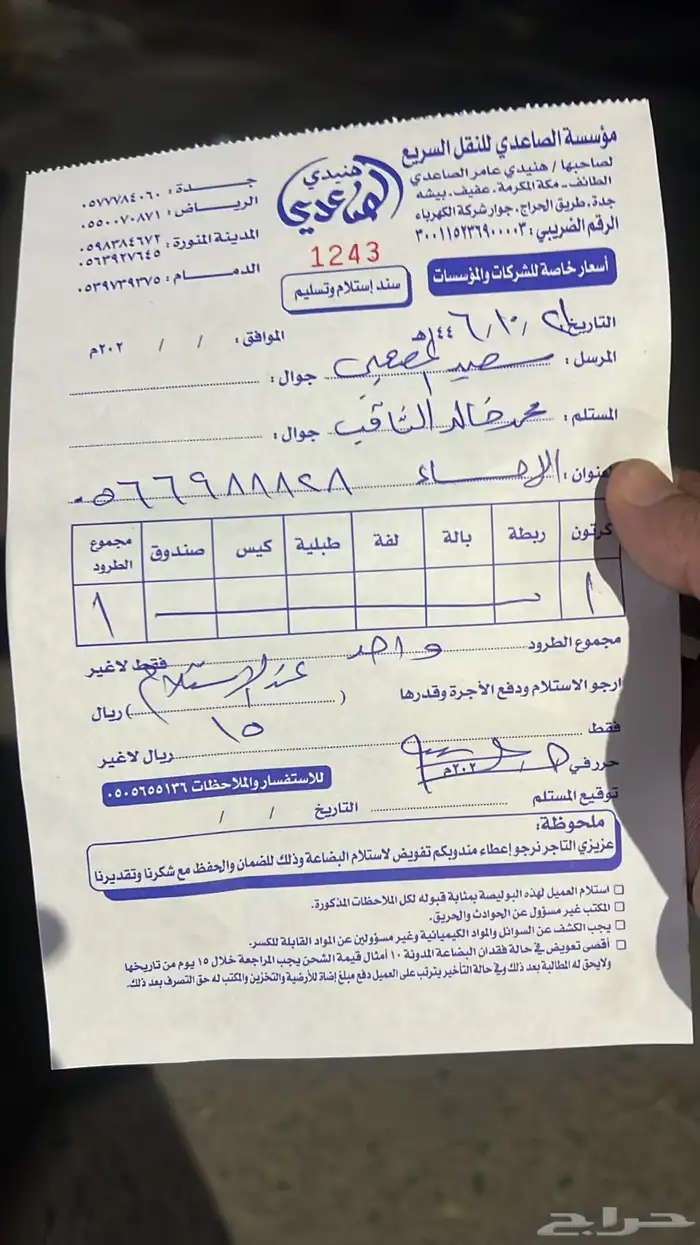 مؤسسة الصاعدي للنقل السريع
لصاحبها / هنيدي عامر الصاعدي
الطائف - مكة المكرمة، عفيف، بيشه
جدة، طريق الحراج، جوار شركة الكهرباء
الرقم الضريبي: ٣٠٠١١٥٢٣٦٩٠٠٠٠٣
أسعار خاصة للشركات والمؤسسات
هنيدي
الصاعدي
1243
سند إستلام وتسليم
جـــدة: ٠٥٧٧٧٨٤٠٦٠
الرياض: ٠٥٥٠٠٧٠٨٧١
المدينة المنورة: ٠٥٩٨٣٨٤٦٧٢
٠٥٦٣٩٢٧٦٤٥
الدمــام: ٠٥٣٩٧٣٩٣٧٥
التاريخ ٢١ / ١٠ / ١٤٤٦هـ الموافق: / / ٢٠٢م
المرسل: سعيد جوال:
المستلم: محمد خالد الثاقب جوال:
العنوان: الاحساء ٠٥٦٦٩٨٨٨٢٨
كرتون ربطة بالة لفة طبلية كيس صندوق مجموع الطرود
١ ١
مجموع الطرود واحد فقط لاغير
ارجو الاستلام ودفع الأجرة وقدرها ( عند الاستلام ) ريال
فقط ١٥ ريال لاغير
حرر في ٢٠٢م
للاستفسار والملاحظات ٠٥٠٥٦٥٥١٣٦
توقيع المستلم التاريخ / /
ملحوظة:
عزيزي التاجر نرجو إعطاء مندوبكم تفويض لاستلام البضاعة وذلك للضمان والحفظ مع شكرنا وتقديرنا
استلام العميل لهذه البوليصة بمثابة قبوله لكل الملاحظات المذكورة.
المكتب غير مسؤول عن الحوادث والحريق.
يجب الكشف عن السوائل والمواد الكيميائية وغير مسؤولين عن المواد القابلة للكسر.
أقصى تعويض في حالة فقدان البضاعة المدونة ١٠ أمثال قيمة الشحن يجب المراجعة خلال ١٥ يوم من تاريخها
ولايحق له المطالبة بعد ذلك وفي حالة التأخير يترتب على العميل دفع مبلغ إضافة للأرضية والتخزين والمكتب له حق التصرف بعد ذلك.
حراج